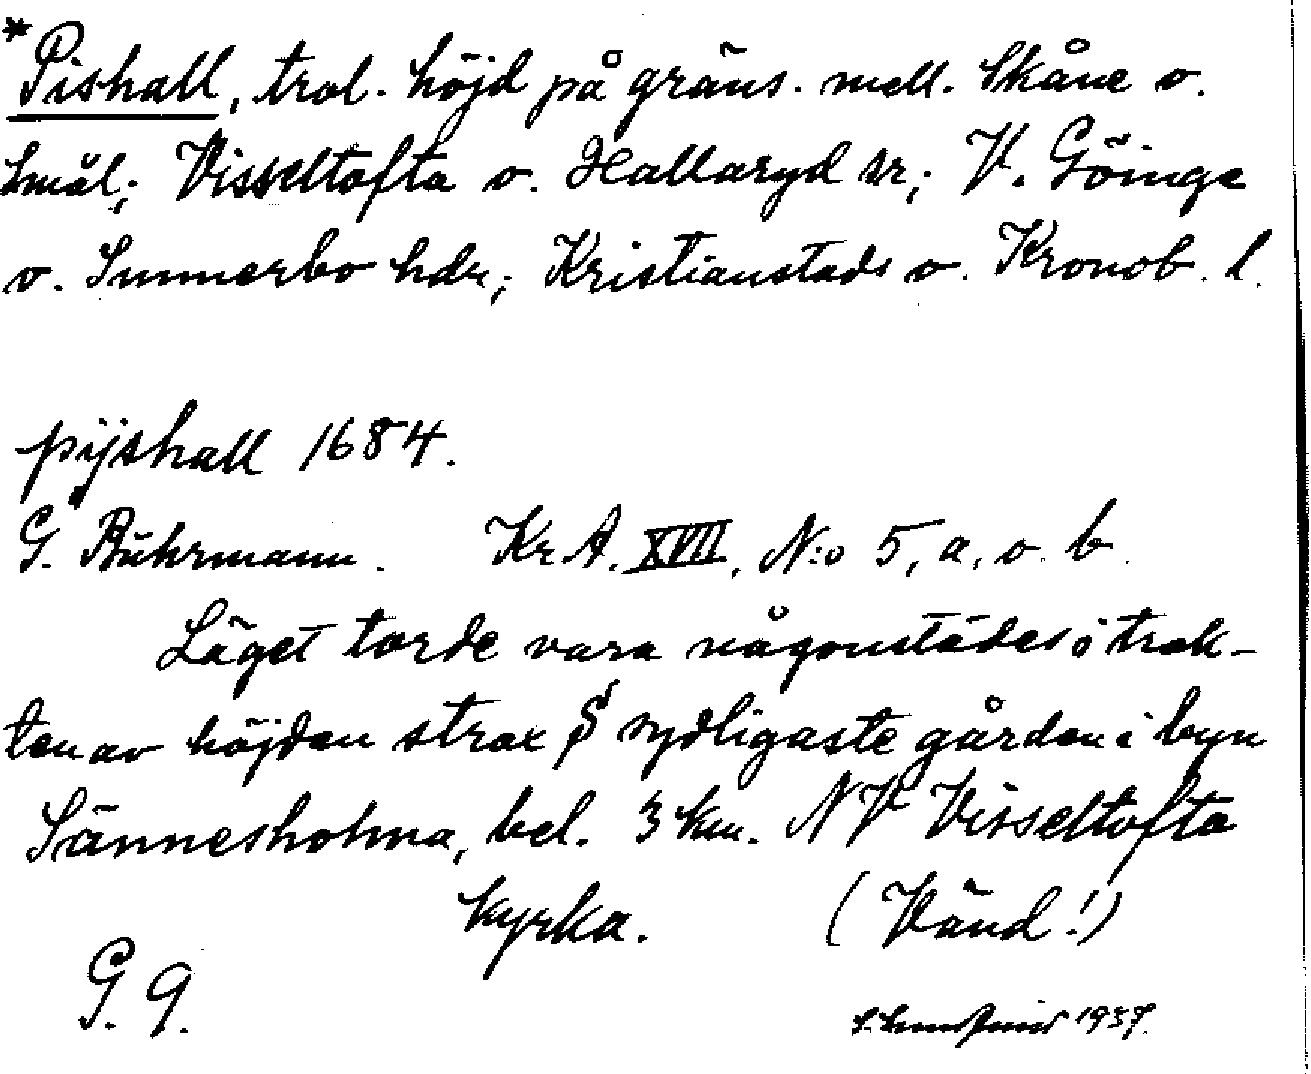 *Pishall, trol. höjd på gräns. mell. Skåne o.
Smål; Visseltofta o. Hallaryd sr; V. Göinge
o. Sunnerbo hdr; Kristianstads o. Kronob. l.
pijshall 1684.
G. Buhrmann. Kr. A. XVII, N:o 5, a, o. b.
Läget torde vara någonstädes i trak-
ten av höjden strax S sydligaste gården i byn
Sännesholma, bel. 3 km. NV Visseltofta
kyrka. (Vänd!)
G. 9.
1937.